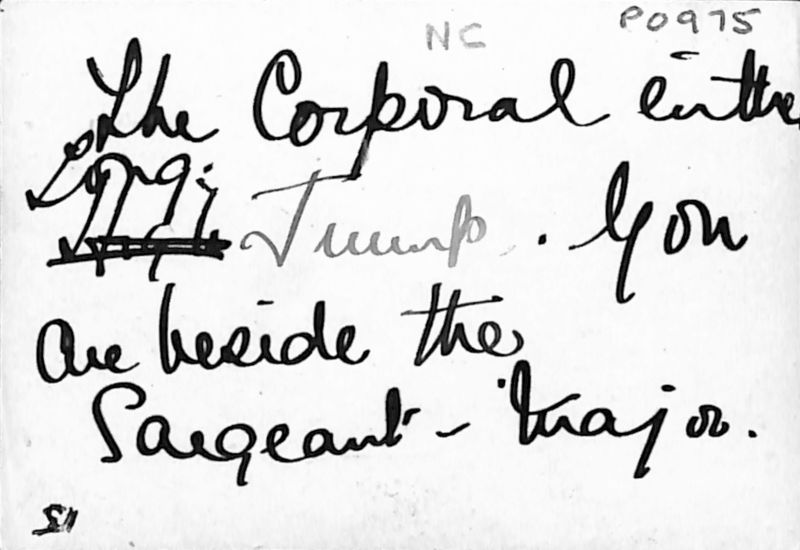 NC
P0975
The Corporal in the
Long
Jump. You
are beside the
Sargeant - Major.